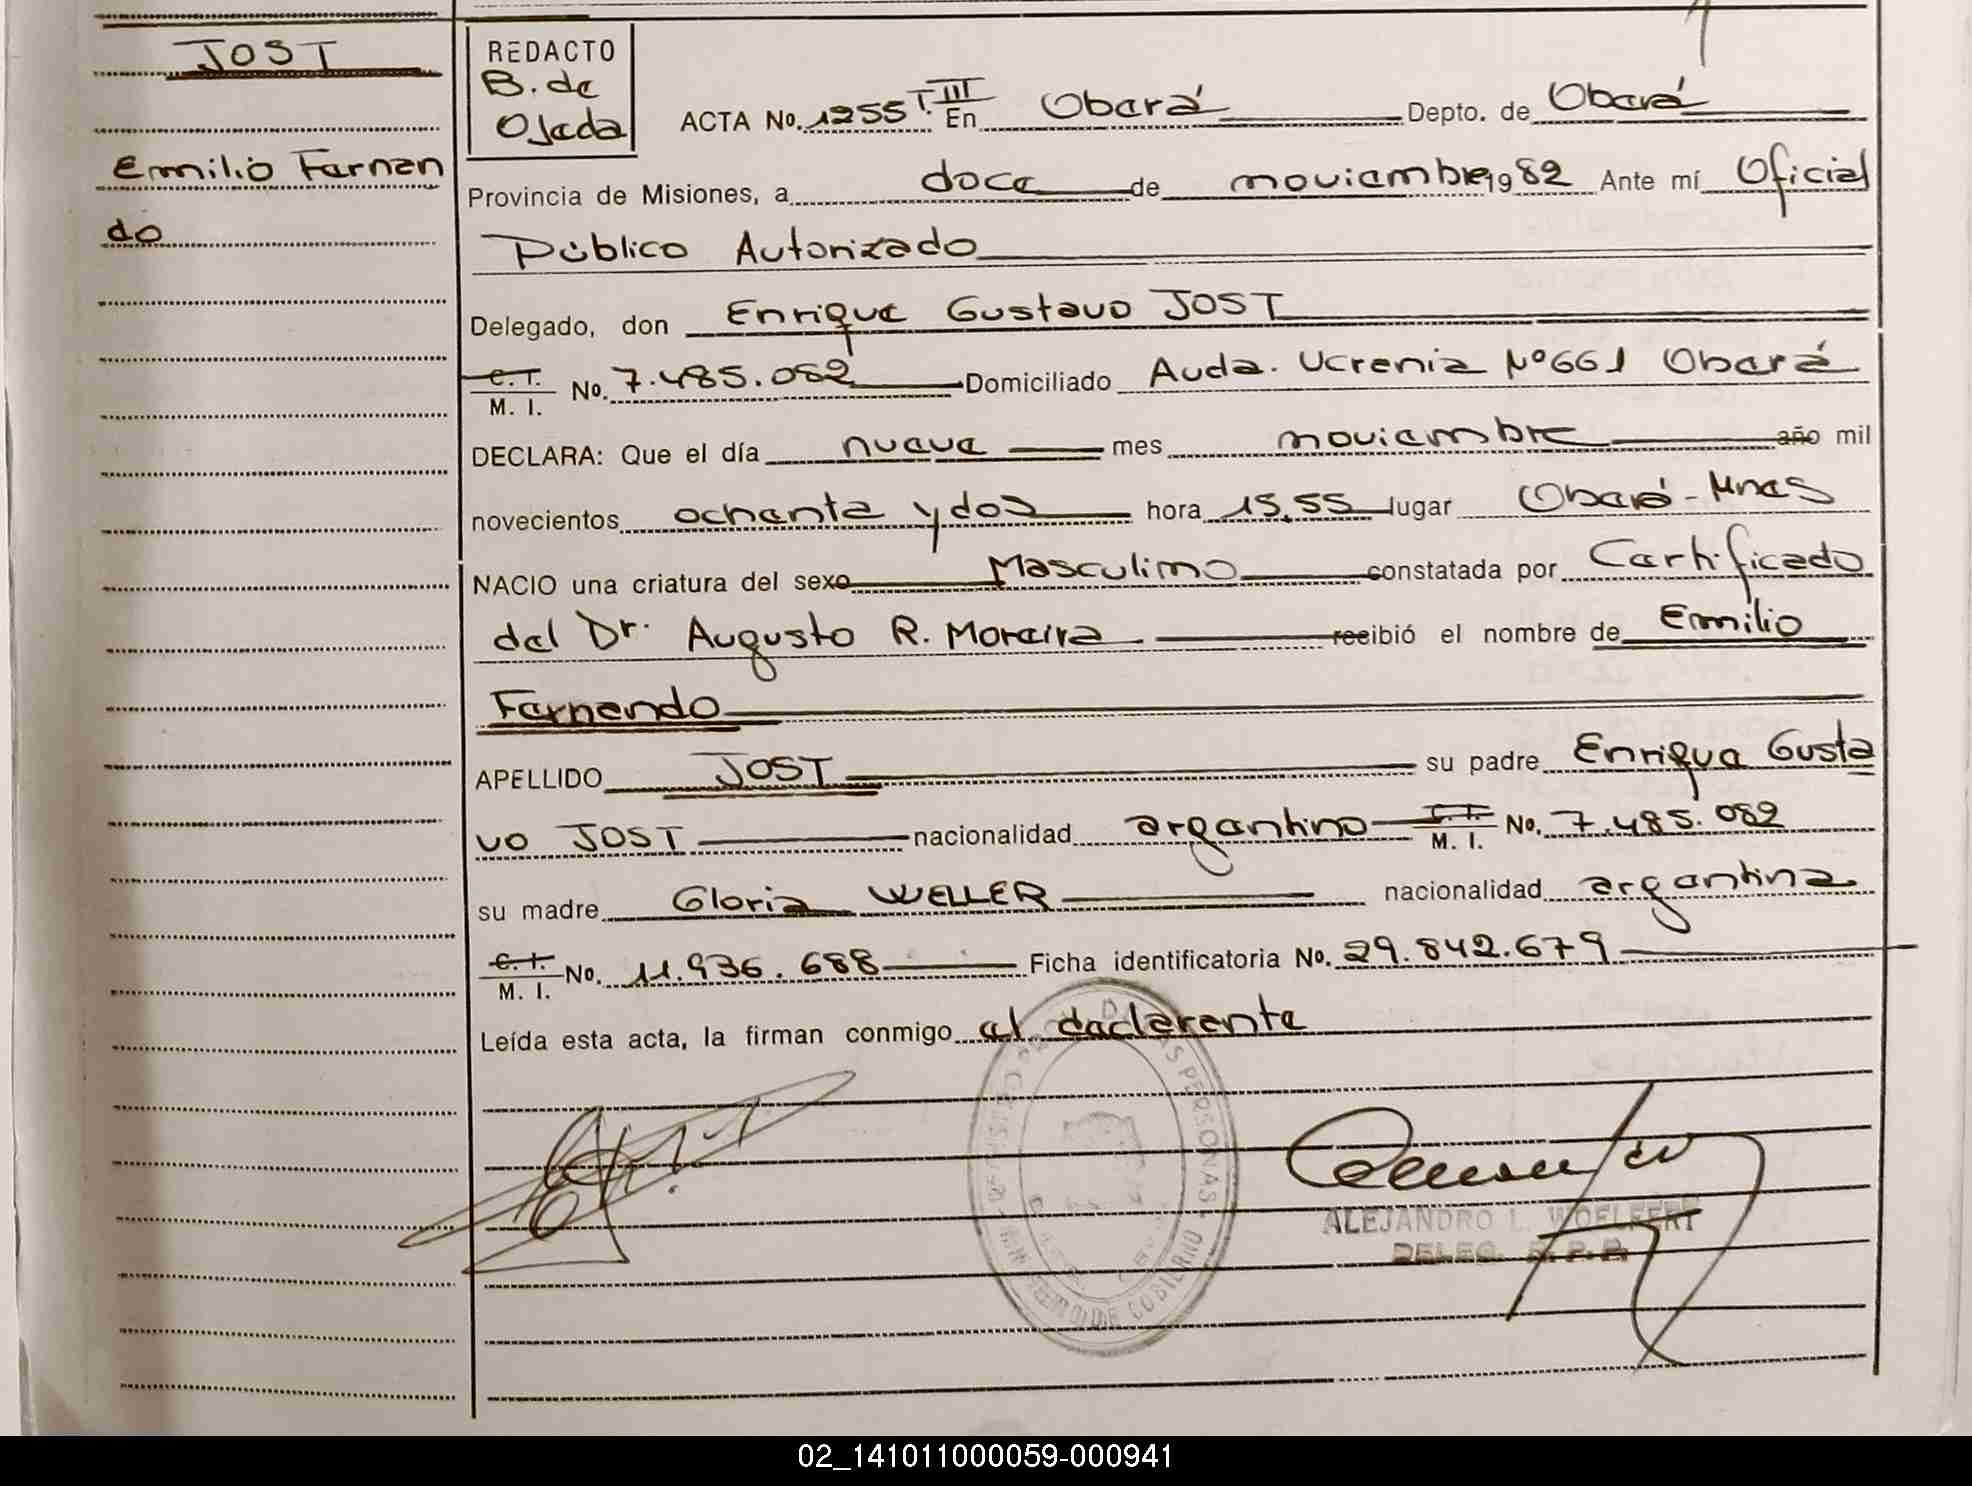 JOST
Emilio Fernan
do
REDACTO
B. de
Ojeda
ACTA No. 1255 T. III En Oberá Depto. de Oberá
Provincia de Misiones, a doce de noviembre 1982 Ante mí Oficial
Público Autorizado
Delegado, don Enrique Gustavo JOST
C. I.
M. I. No. 7.485.082 Domiciliado Avda. Ucrania Nº 661 Oberá
DECLARA: Que el día nueve mes noviembre año mil
novecientos ochenta y dos hora 15,55 lugar Oberá - Mnes
NACIO una criatura del sexo Masculino constatada por Certificado
del Dr. Augusto R. Moreira recibió el nombre de Emilio
Fernando
APELLIDO JOST su padre Enrique Gusta
vo JOST nacionalidad argentino C. I. M. I. No. 7.485.082
su madre Gloria WELLER nacionalidad argentina
C. I.
M. I. No. 11.936.688 Ficha identificatoria No. 29.842.679
Leída esta acta, la firman conmigo el declarente
DE LAS PERSONAS
DE GOBIERNO
ALEJANDRO L. WOELFERT
DELEG. R. P. P.
02_141011000059-000941